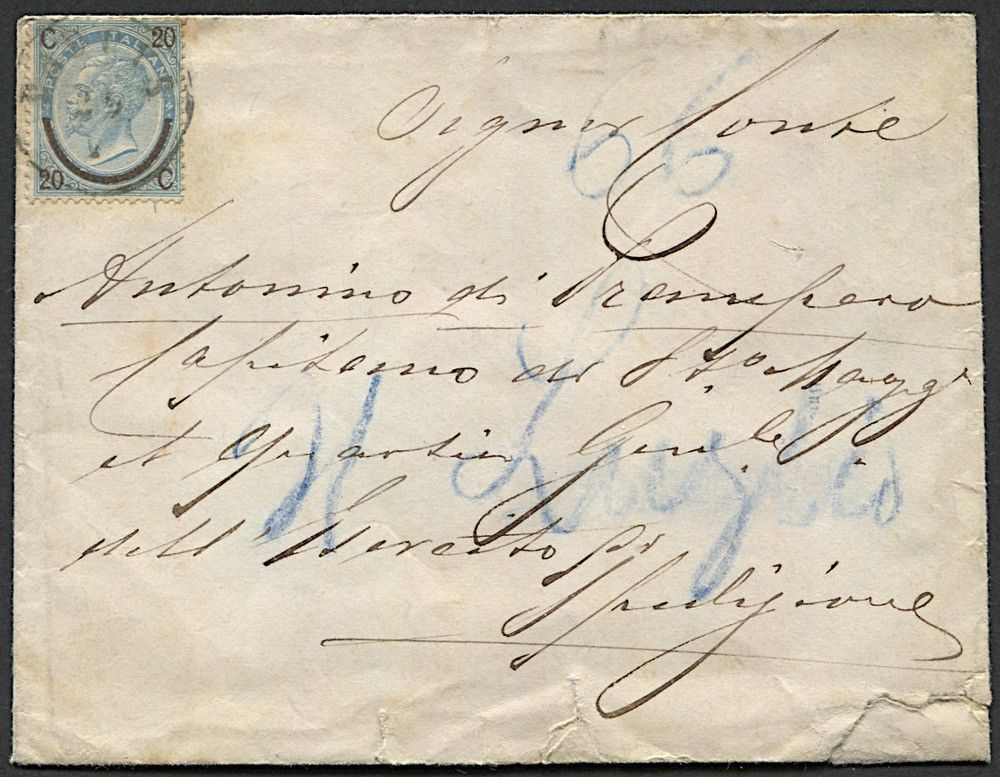 C 20
POSTE ITALIANE
20 C
66
Signor Conte
Antonino di Prampero
Capitano di Sto Maggre
al Quartier Genle
dell'Esercito di
Spedizione
11 Luglio